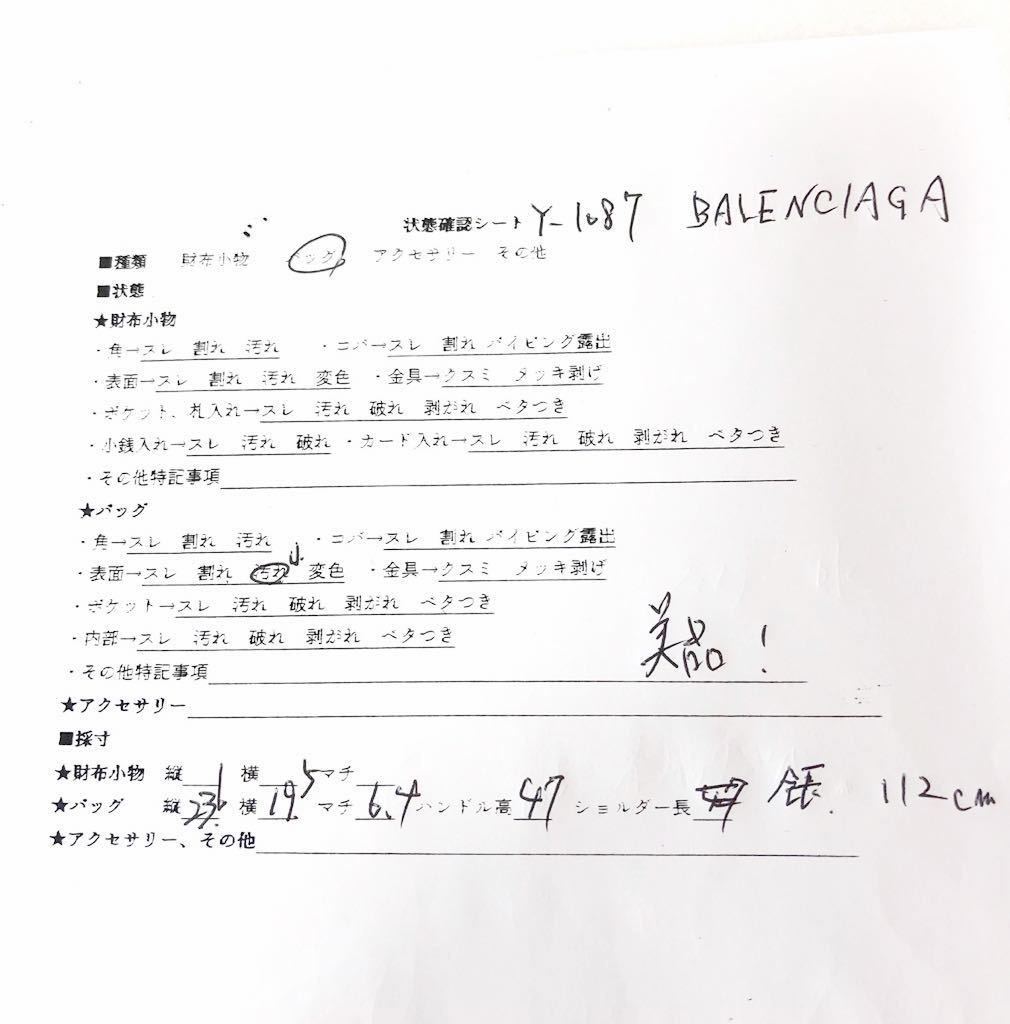 状態確認シート Y-1087 BALENCIAGA
■種類 財布小物 バッグ アクセサリー その他
■状態
★財布小物
・角→スレ 割れ 汚れ ・コバ→スレ 割れ パイピング露出
・表面→スレ 割れ 汚れ 変色 ・金具→クスミ メッキ剥げ
・ポケット、札入れ→スレ 汚れ 破れ 剥がれ ベタつき
・小銭入れ→スレ 汚れ 破れ ・カード入れ→スレ 汚れ 破れ 剥がれ ベタつき
・その他特記事項
★バッグ
・角→スレ 割れ 汚れ ・コバ→スレ 割れ パイピング露出
・表面→スレ 割れ 汚れ 小 変色 ・金具→クスミ メッキ剥げ
・ポケット→スレ 汚れ 破れ 剥がれ ベタつき
・内部→スレ 汚れ 破れ 剥がれ ベタつき
美品!
・その他特記事項
★アクセサリー
■採寸
★財布小物 縦 横 マチ
★バッグ 縦 横19.5 マチ6.4 ハンドル高47 ショルダー長 全長 112cm
★アクセサリー、その他